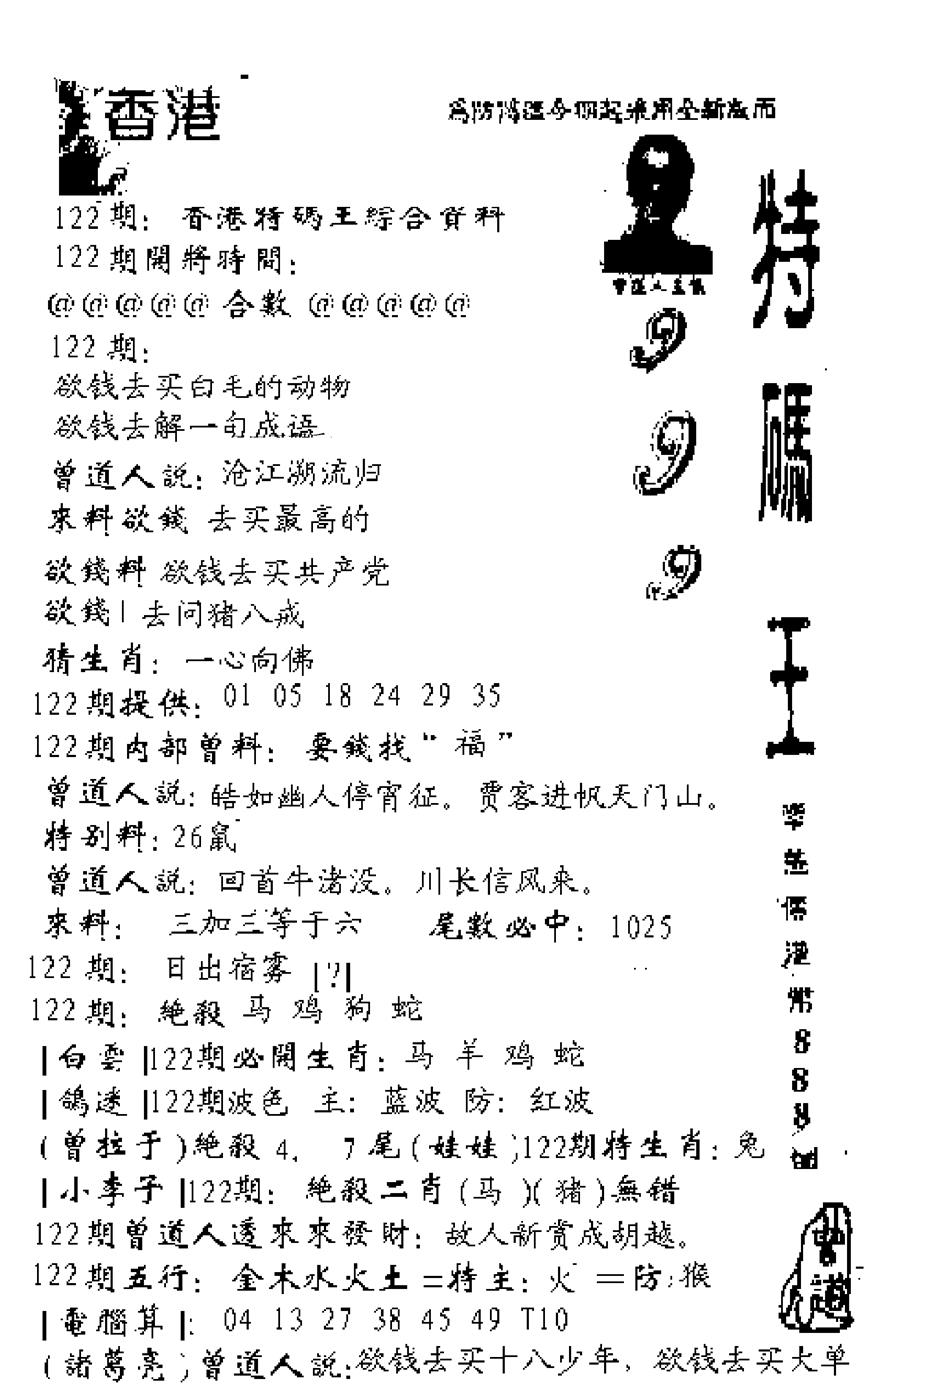 香港
為防濫造今期起采用全新版面
特碼王
曾道人主儀
999
122期：香港特碼王綜合資料
122期開將時間：
@@@@@合數@@@@@
122期：
欲钱去买白毛的动物
欲钱去解一句成语
曾道人説：沧江溯流归
來料欲錢 去买最高的
欲錢料 欲钱去买共产党
欲錢| 去问猪八戒
猜生肖：一心向佛
122期提供：01 05 18 24 29 35
122期内部曾料：要錢找“福”
曾道人説：皓如幽人停宵征。贾客进帆天门山。
特别料：26鼠
曾道人説：回首牛渚没。川长信风来。
來料：三加三等于六 尾數必中：1025
122期：日出宿雾 |?|
122期：絶殺 马 鸡 狗 蛇
|白雲|122期必開生肖：马 羊 鸡 蛇
|鴿迷|122期波色 主：蓝波 防：红波
(曾拉于)絶殺 4. 7尾(娃娃)122期特生肖：兔
|小李子|122期：絶殺二肖(马)(猪)無错
122期曾道人透來來發財：故人新赏成胡越。
122期五行：金木水火土=特主：火=防：猴
|電腦算|：04 13 27 38 45 49 T10
(諸葛亮)曾道人説：欲钱去买十八少年，欲钱去买大单
港
888
曾道